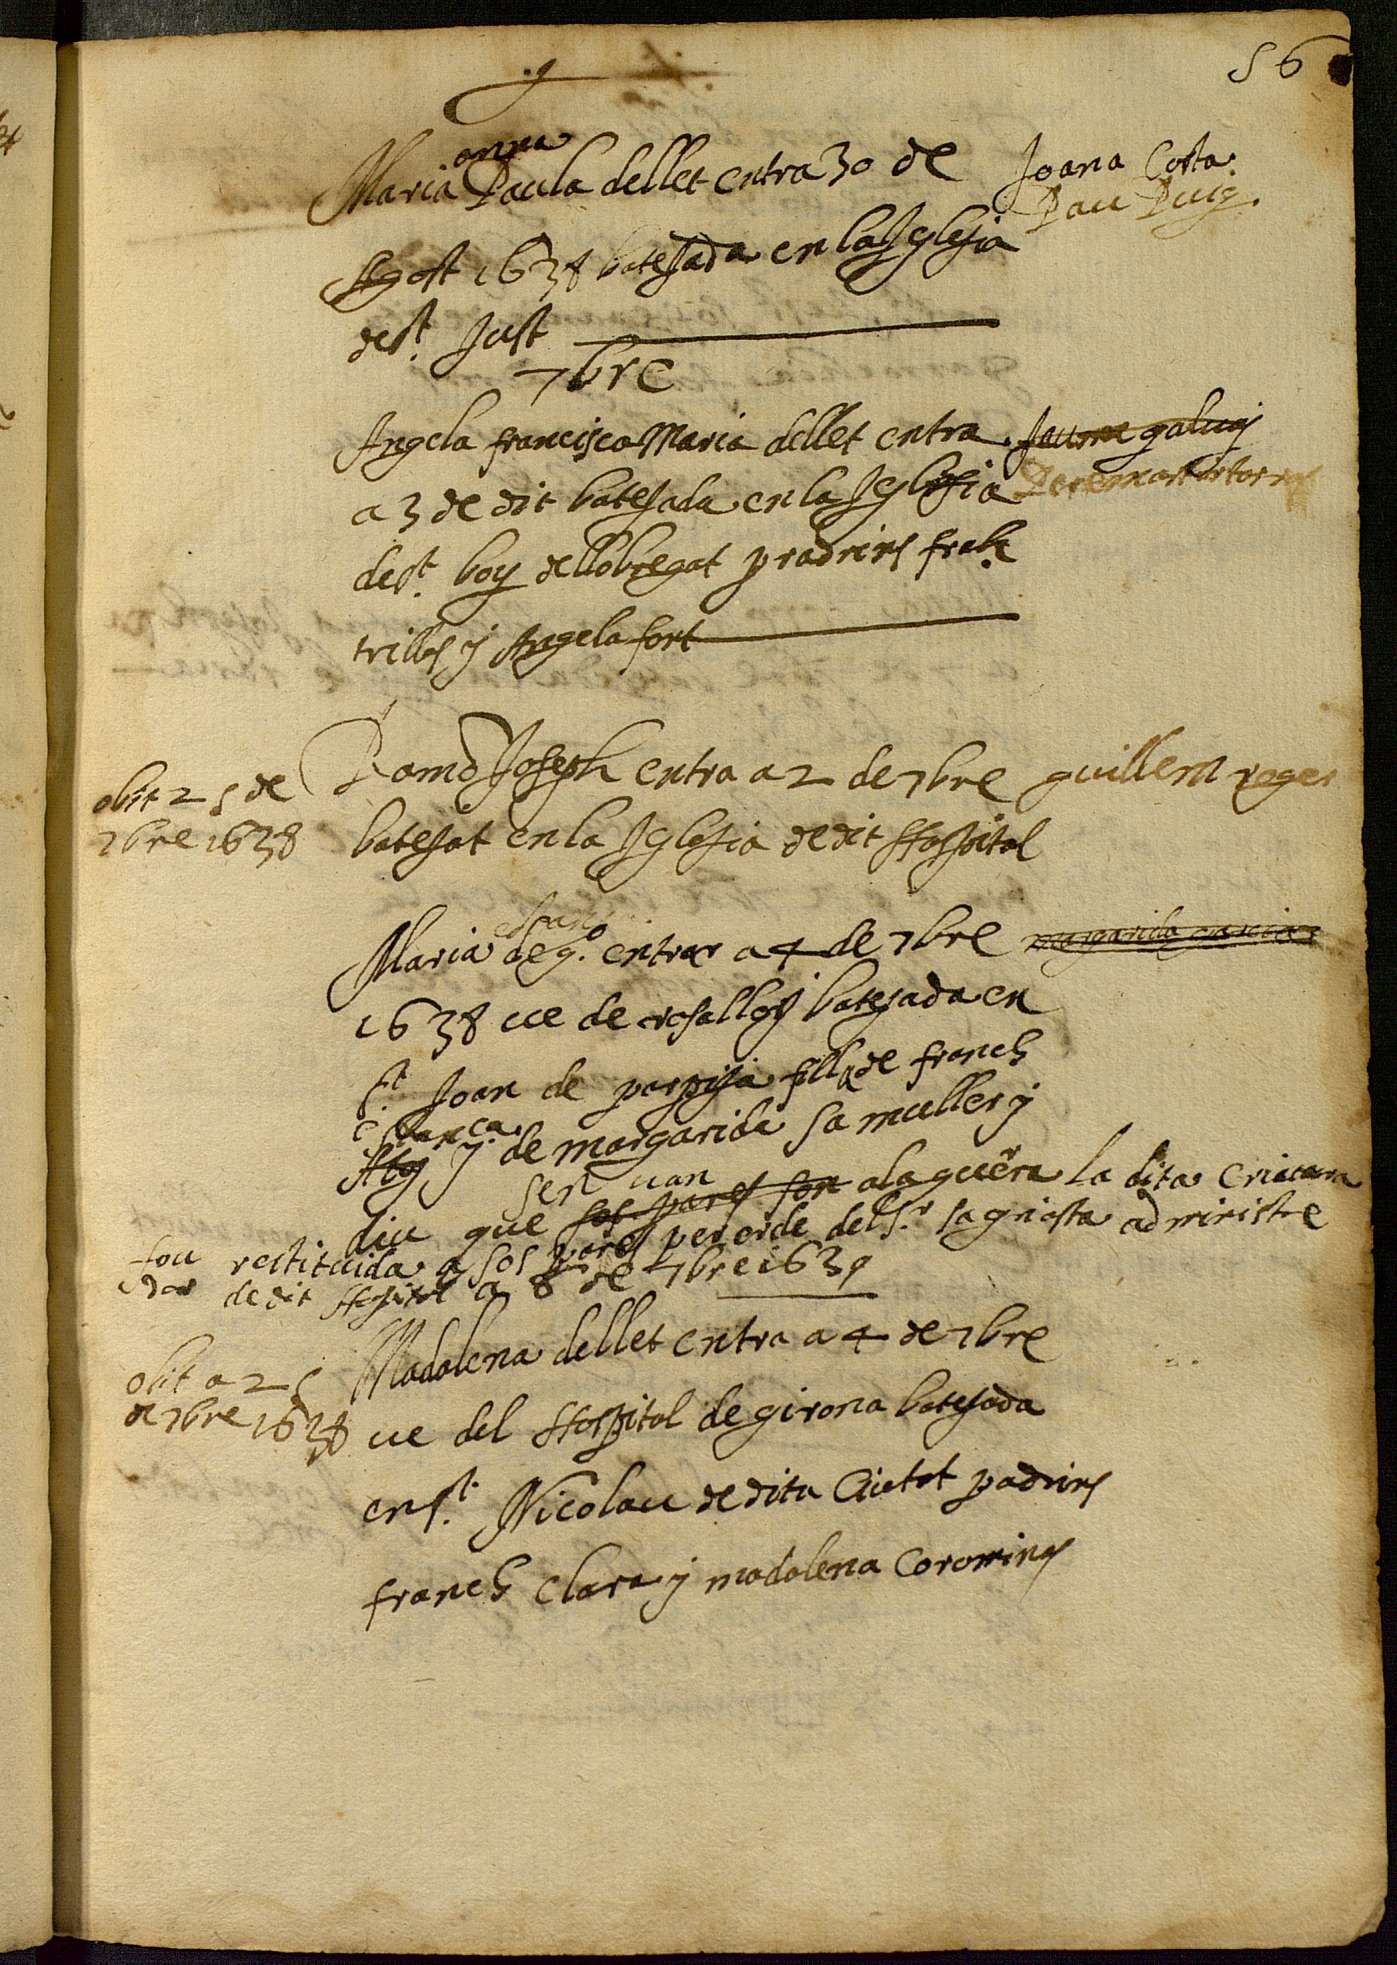 56
anna
Maria Paula dellet entra 30 de
Joana Costa
Pau Puig.
Agost 1638 batejada en la Iglesia
de St. Just
7bre
Angela francisca Maria dellet entra
Jaume galuy
a 3 de dit batejada en la Iglesia
Pere
de St. boy de llobregat padrins
trilles y Angela fort
obit 25 de
7bre 1638
Ramo Joseph entra a 2 de 7bre
guillem roger
batejat en la Iglesia de dit Hospital
Maria de g. entra a 4 de 7bre
margarida
1638 ve de batejada en
St. Joan de filla de franch
y de margarida sa muller y
sen van
diu que sos pares son a la guerra la dita Criatura
fou restituida a sos pares per orde del Sr. administra
dor de dit Hospital a 8 de 7bre 1639
obit a 25
de 7bre 1638
Madalena dellet entra a 4 de 7bre
ve del Hospital de girona batejada
en St. Nicolau de dita Ciutat padrins
franch Clara y madalena Coromines